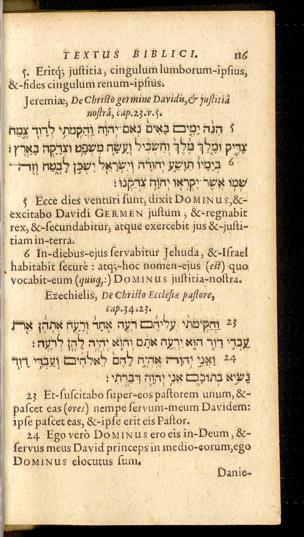 TEXTUS BIBLICI. 116
5. Eritq; justitia, cingulum lumborum-ipsius,
&-fides cingulum renum-ipsius.
Jeremiæ, De Christo germine Davidis, & justitiâ
nostrâ, cap.23.v.5.
5 הנה ימים באים נאם־יהוה והקמתי לדוד צמח
צדיק ומלך מלך והשכיל ועשה משפט וצדקה בארץ׃
6 בימיו תושע יהודה וישראל ישכן לבטח וזה־
שמו אשר־יקראו יהוה צדקנו׃
5 Ecce dies venturi sunt, dixit DOMINUS, &-
excitabo Davidi GERMEN justum, &-regnabit
rex, &-secundabitur, atque exercebit jus &-justi-
tiam in-terra.
6 In-diebus-ejus servabitur Jehuda, &-Israel
habitabit securè : atq;-hoc nomen-ejus (est) quo
vocabit-eum (quisq;:) DOMINUS justitia-nostra.
Ezechielis, De Christo Ecclesiæ pastore,
cap.34:23.
23 והקימתי עליהם רעה אחד ורעה אתהן את
עבדי דויד הוא ירעה אתם והוא יהיה להן לרעה׃
24 ואני יהוה אהיה להם לאלהים ועבדי דוד
נשיא בתוכם אני יהוה דברתי׃
23 Et-suscitabo super-eos pastorem unum, &-
pascet eas (oves) nempe servum-meum Davidem:
ipse pascet eas, &-ipse erit eis Pastor.
24 Ego verò DOMINUS ero eis in-Deum, &-
servus meus David princeps in medio-eorum, ego
DOMINUS elocutus sum.
Danie-